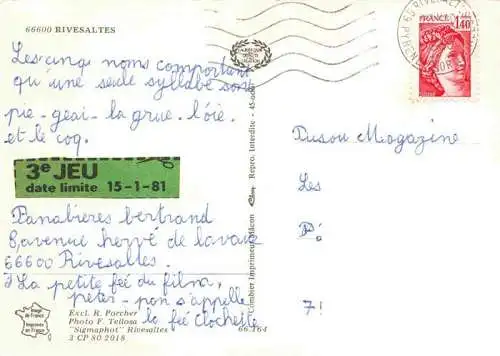 66600 RIVESALTES
Les cinq noms comportant
qu'une seule syllabe sont
pie - geai - la grue - l'oie.
et le coq.
3e JEU
date limite 15-1-81
Panabieres bertrand
8, avenue hervé de lavaur
66600 Rivesaltes.
La petite fée du film,
peter-pan s'appelle
la fée clochette
Image
de France
Imprimée
en France
Excl. R. Porcher
Photo F. Tellosa
"Sigmaphot" Rivesaltes
3 CP 80 2018
66.164
Combier Imprimeur Mâcon
Repro. Interdite
FRANCE
1,40
Magazine
Les
7!